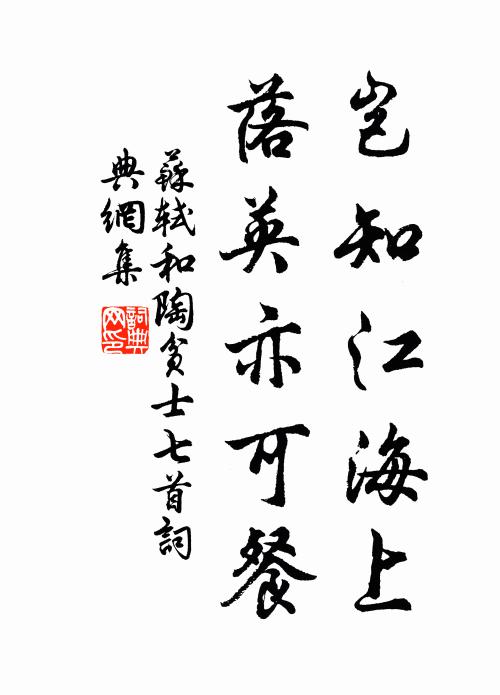 岂知江海上
落英亦可餐
蘇軾和陶贫士七首詞
典網集
詞典网印